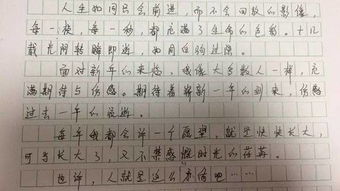 人生如同只会前进，而不会回放的影像，
每一帧，每一秒，都充满了生命的色彩。十几
载光阴转瞬即逝，如同白驹过隙。
面对新年的来临，我像大多数人一样，充
满期待与伤感。期待着崭新一年的到来，伤感
过去一年的
每年我都会许一个愿望，就是快快长大，
可当长大了，又不禁感慨时光的荏苒。
也许，人就是这么矛盾吧……